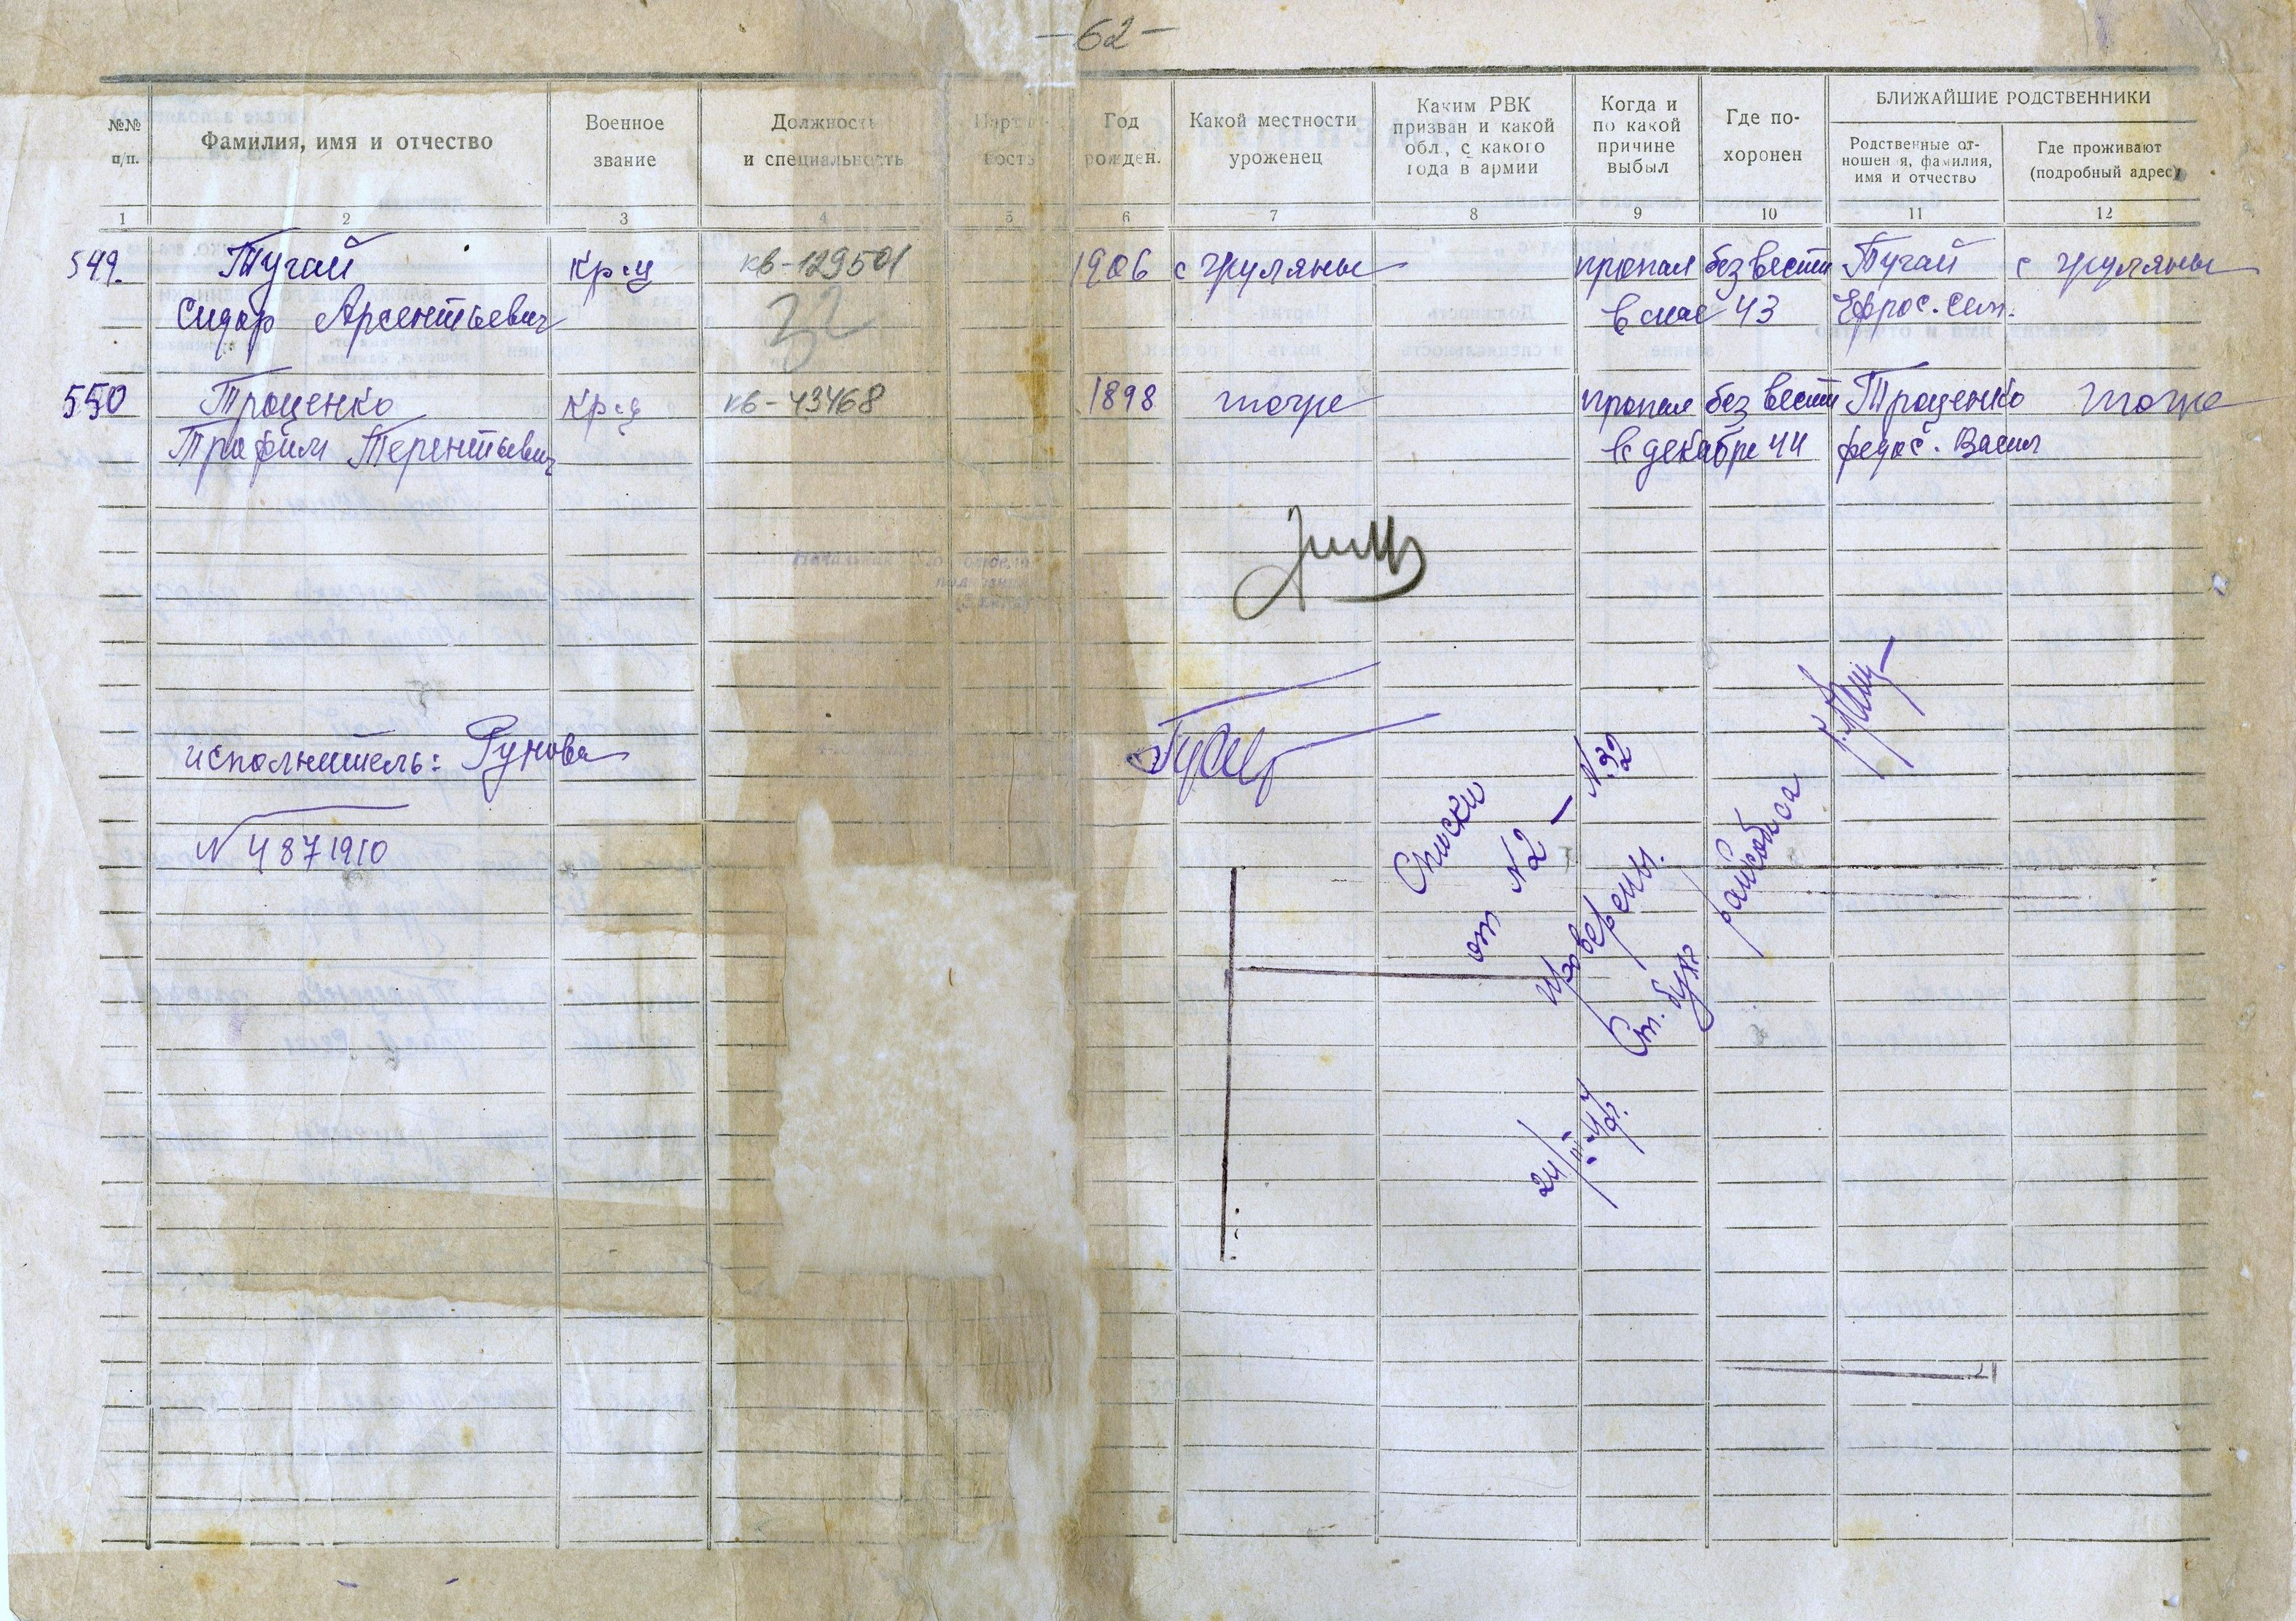 -62-
№№ п/п.
Фамилия, имя и отчество
Военное звание
Должность и специальность
Партий- ность
Год рожден.
Какой местности уроженец
Каким РВК призван и какой обл., с какого года в армии
Когда и по какой причине выбыл
Где по- хоронен
БЛИЖАЙШИЕ РОДСТВЕННИКИ
Родственные от- ношения, фамилия, имя и отчество
Где проживают (подробный адрес)
1 2 3 4 5 6 7 8 9 10 11 12
549. Тугай кр-ц кв-129501 1906 с Груляны пропал без вести Тугай с Груляны
Сидор Арсентьевич 32 в мае 43 Ефрос. Сем.
550 Троценко кр-ц кв-43468 1898 тоже пропал без вести Троценко тоже
Трофим Терентьевич в декабре 44 Федос. Васил
исполнитель: Рунова
N 4871910
Списки
от №2 — №32
проверены.
Ст. бух. райсобеса
24/III-47г.